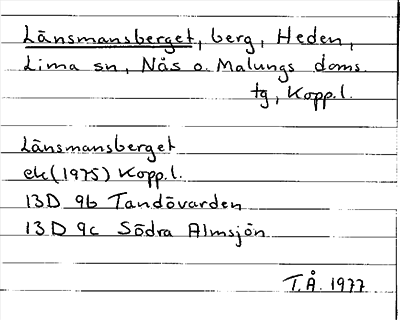 Länsmansberget, berg, Heden,
Lima sn, Nås o. Malungs doms.
tg, Kopp. l.
Länsmansberget
ek (1975) Kopp. l.
13D 9b Tandövarden
13D 9c Södra Almsjön
T.Å. 1977